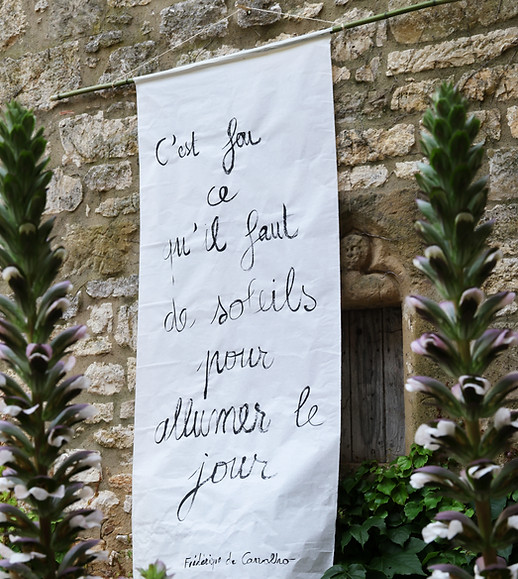 C'est fou
ce
qu'il faut
de soleils
pour
allumer le
jour
Frédérique de Carvalho